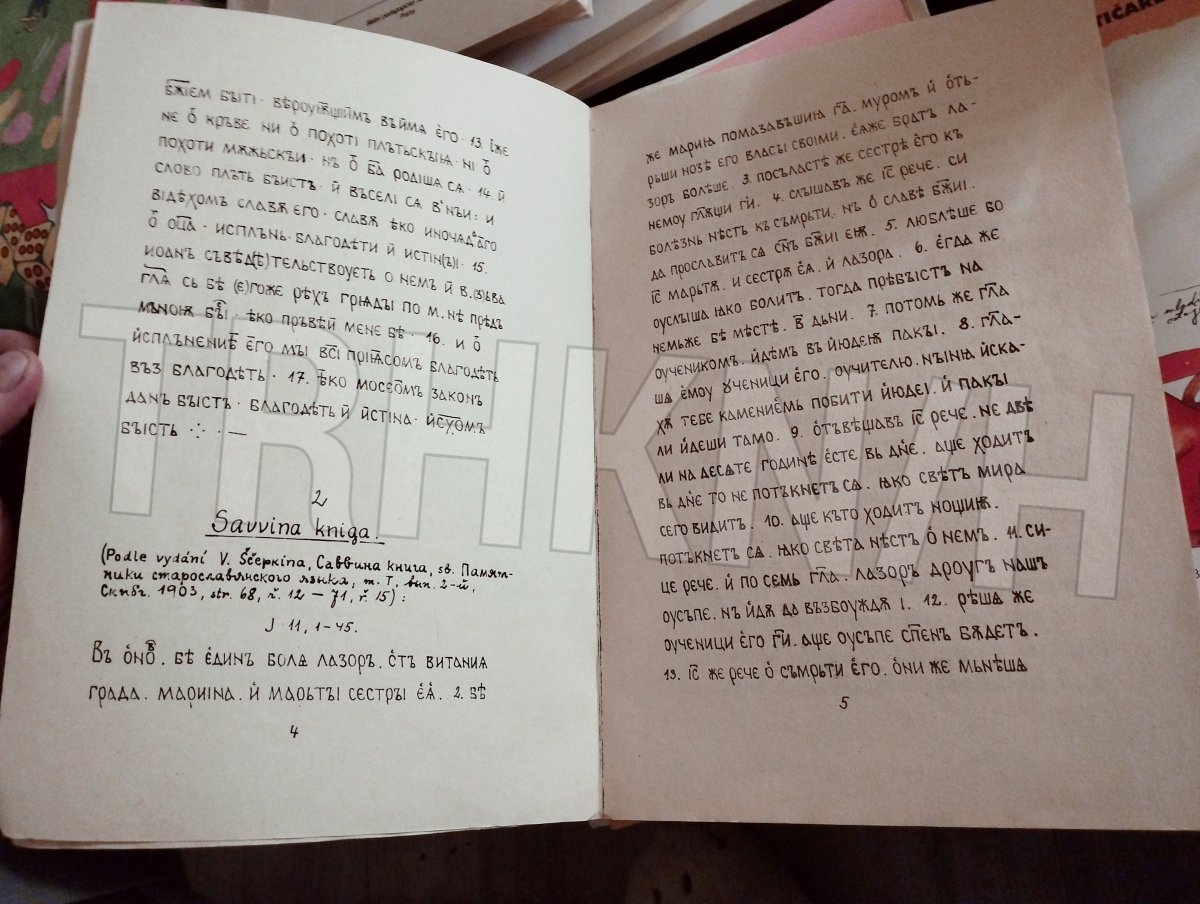 бж҃иєм бꙑті · вѣроуѭщіимъ въ има єго · 13. іже
не о҃ кръве ни о҃ похоті плътьскыꙗ · ні о҃
похоти мѫжьскꙑ · нъ о҃ ба҃ родіша сѧ · 14. и
слово плътъ бꙑстъ · и въселі сѧ в нꙑ : и
відѣхомъ славѫ єго · славѫ ѣко иночѧдаго
о҃ оца҃ · исплънь благодѣти и істін(ꙑ) · 15.
иоанъ съвѣд(ѣ)тельствоуєтъ о немъ и в.(з)ъва
гл҃ѧ сь бѣ (є)гоже рѣхъ грѩдꙑ по м.нѣ прѣдъ
мъноѭ бꙑ҃ · ѣко пръвѣй мене бѣ · 16. и о҃
исплъненіѣ єго мꙑ всі приѩсомъ благодѣть
въз благодѣть · 17. ѣко мосеомъ закон
данъ бꙑстъ · благодѣть и істіна · ису҃хомъ
бꙑсть ·:· · —
2
Savvina kniga.
(Podle vydání V. Ščepkina, Саввина книга, sv. Памят-
ники старославянского языка, т. I, вып. 2-й,
Скпбг. 1903, str. 68, ř. 12 — 71, ř. 15):
J 11, 1-45.
Въ о҆но҃в . бѣ єдинъ болѧ лазоръ . о҃тъ витаниꙗ
града . мариіна . и марьтꙑ сестрꙑ єѧ . 2. бѣ
4
же мариꙗ помазавъшиꙗ га҃ . муромъ и отъ-
рьши нозѣ его власꙑ своіми . єѧже братъ ла-
зоръ болѣше . 3. посъластѣ же сестрѣ єго къ
немоу гл҃ѭщи ги҃ . 4. слꙑшавъ же іс҃ рече . си
болѣзнь нѣстъ къ съмрьти . нъ о славѣ бж҃иі .
да прославитъ сѧ сн҃ъ бж҃иі еѭ . 5. люблѣше бо
іс҃ марьтѫ . и сестрѫ єѧ . и лазора . 6. єгда же
оуслꙑша ꙗко болитъ . тогда прѣбꙑстъ на
немьже бѣ мѣстѣ . в҃ дьни . 7. потомь же гл҃а
оученикомъ . идѣмъ въ июдеѭ пакꙑ . 8. гл҃а-
шѧ ємоу ученици єго . оучителю . нꙑнꙗ иска-
хѫ тебе каменіємь побити июдеі . и пакꙑ
ли идеши тамо . 9. отъвѣщавъ іс҃ рече . не двѣ
ли на десѧте годинѣ єсте вь дн҃е . аще ходитъ
вь дн҃е то не потъкнетъ сѧ . ꙗко свѣтъ мира
сего видитъ . 10. аще къто ходитъ нощиѭ .
потъкнетъ сѧ . ꙗко свѣта нѣстъ о немъ . 11. си-
це рече . и по семь гл҃а . лазоръ дроугъ нашъ
оусъпе . нъ идѫ да възбоуждѫ і . 12. рѣшѧ же
оученици єго ги҃ . аще оусъпе сп҃енъ бѫдетъ .
13. іс҃ же рече о съмрьти єго . они же мьнѣшѧ
5